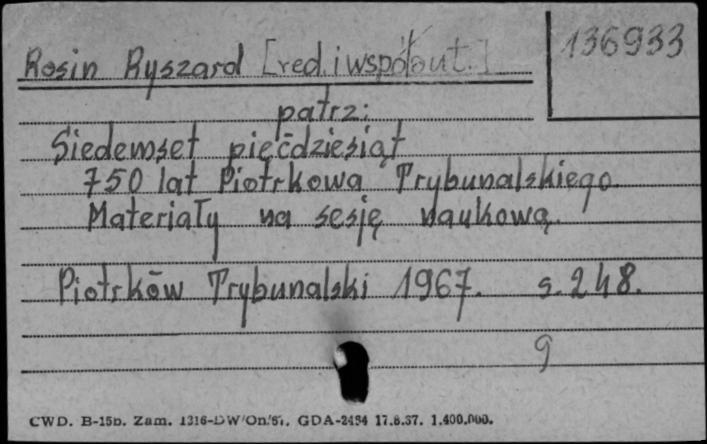 136933
Rosin Ryszard [red. i współaut.]
patrz:
Siedemset pięćdziesiąt
750 lat Piotrkowa Trybunalskiego.
Materiały na sesję naukową.
Piotrków Trybunalski 1967. s. 248.
9
CWD. B-15b. Zam. 1316-DW/On/67. GDA-2494 17.8.67. 1.400.000.